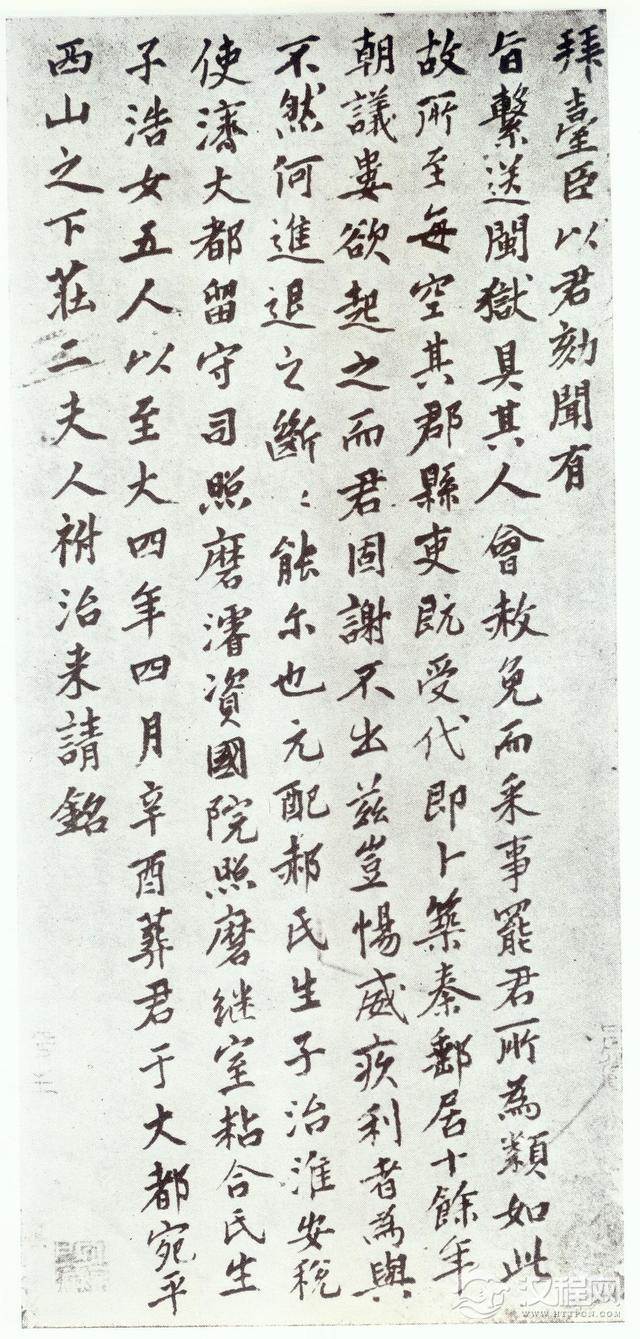 拜臺臣以君劾聞有
旨繫送閩獄具其人會赦免而采事罷君所為類如此
故所至每空其郡縣吏既受代即卜築秦郵居十餘年
朝議婁欲起之而君固謝不出茲豈惕威疚利者為與
不然何進退之斷〻能尒也元配郝氏生子治淮安稅
使濟大都留守司照磨濬資國院照磨継室粘合氏生
子浩女五人以至大四年四月辛酉葬君于大都宛平
西山之下莊二夫人祔治来請銘
汉程网
WWW.HTTPCN.COM